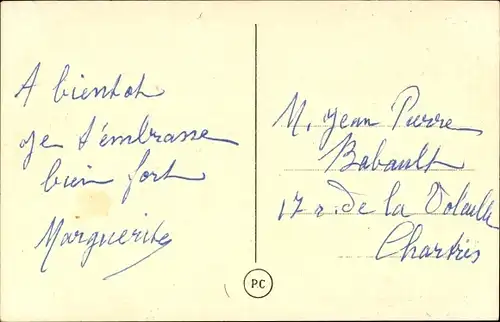 A bientot
je t'embrasse
bien fort
Marguerite
M. Jean Pierre
Babault
17 r. de la Volaille
Chartres
P.C